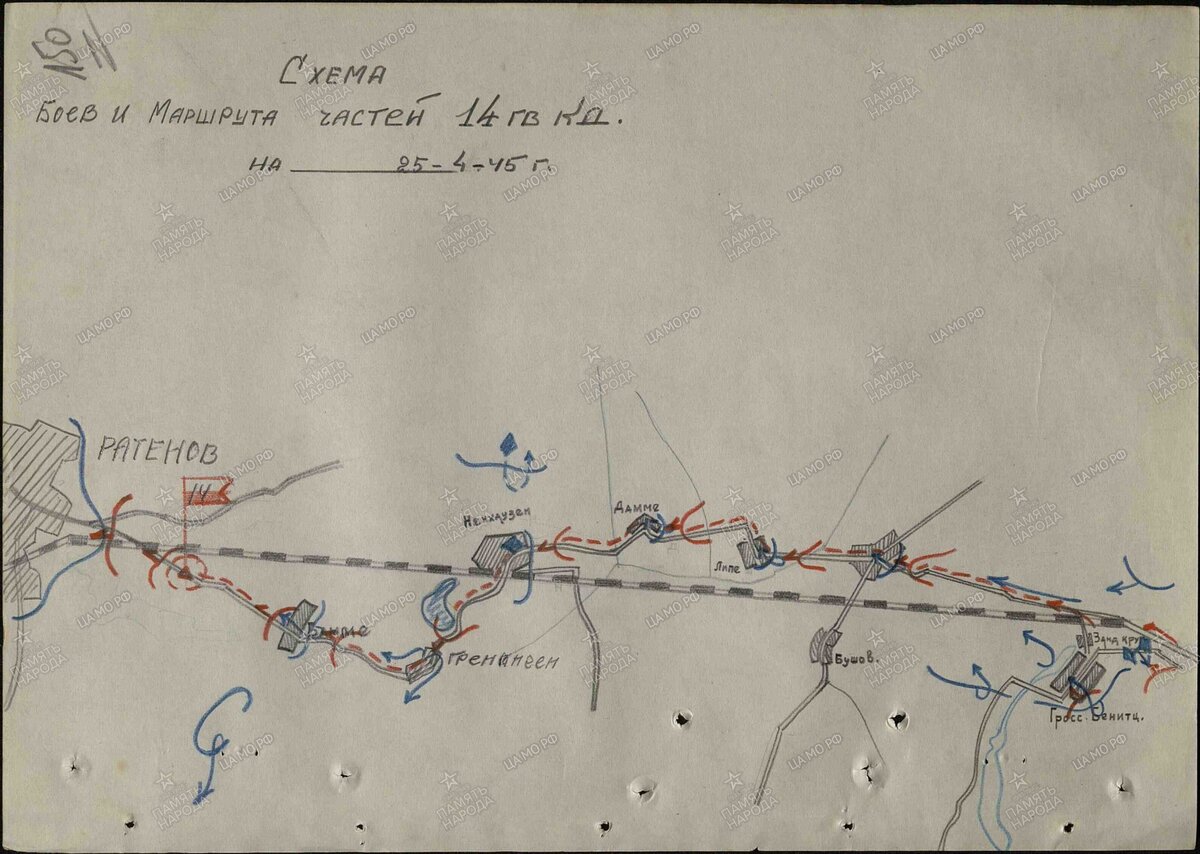 150
Схема
Боев и Маршрута частей 14 гв КД.
на 25-4-45 г.
РАТЕНОВ
14
Ненхаузен
Дамме
Липе
Бамме
Гренинген
Бушов.
Занд круг
Гросс. Бенитц.
ПАМЯТЬ НАРОДА
ЦАМО РФ